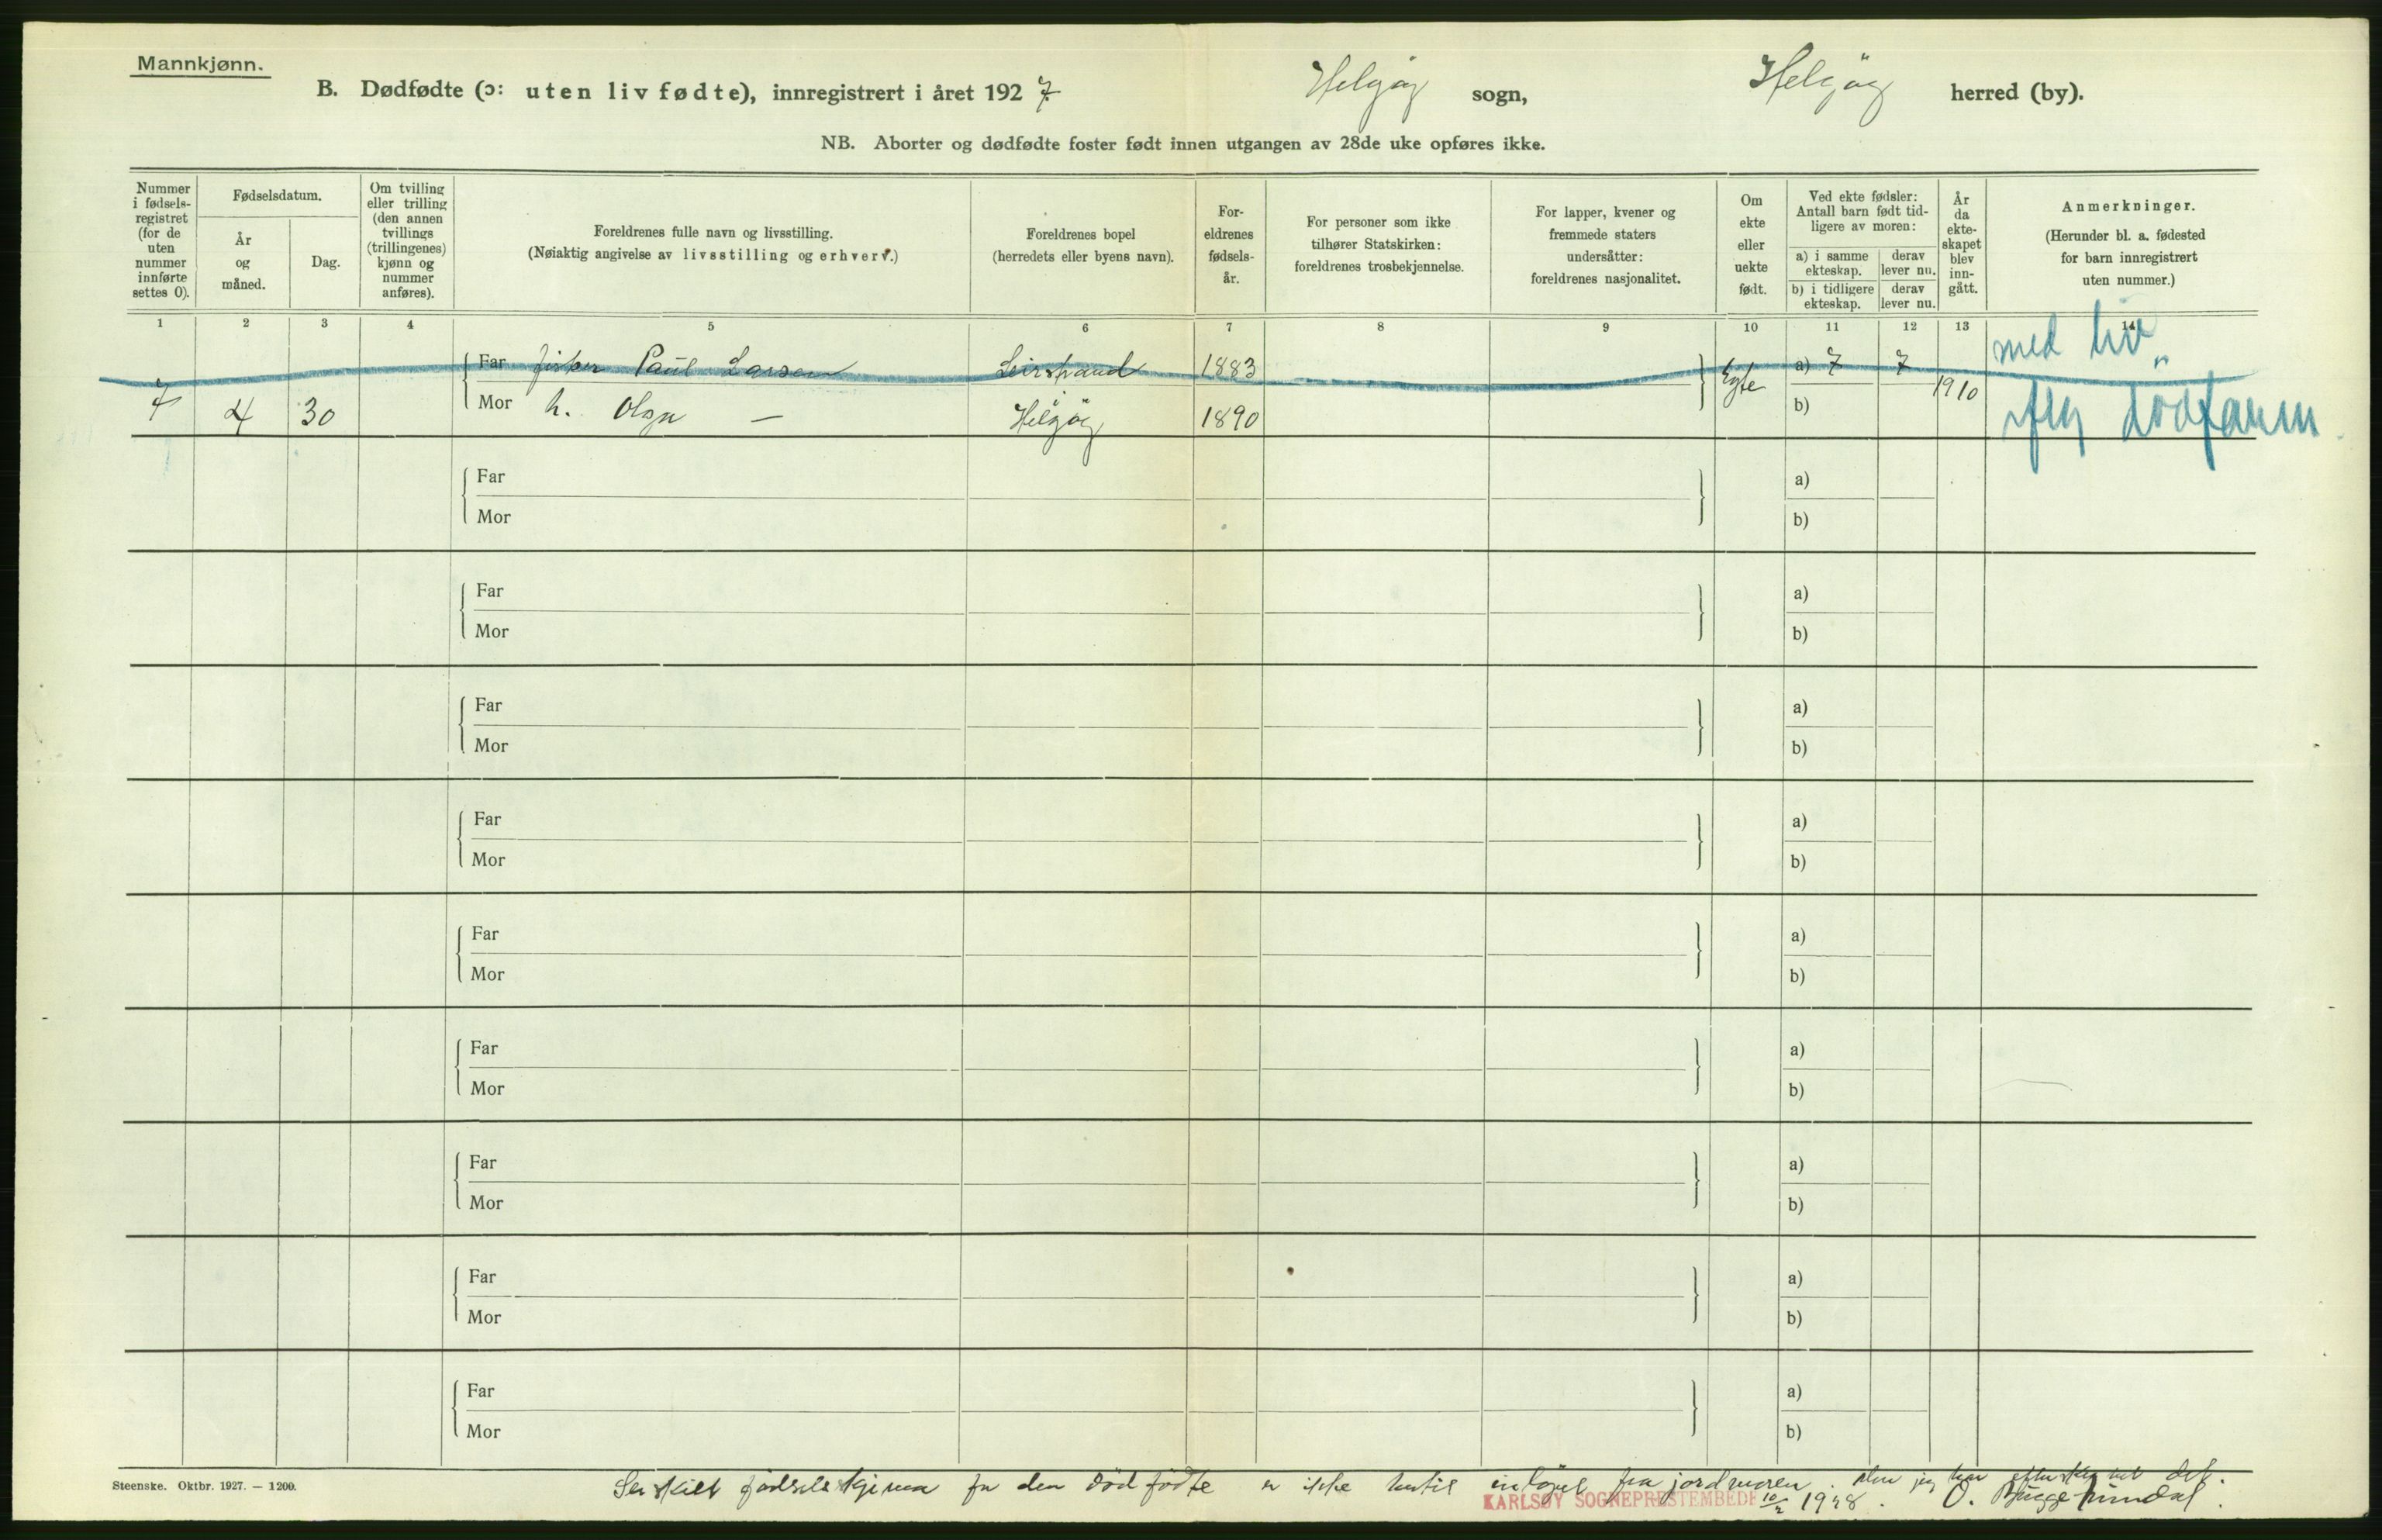 Mannkjønn.
B. Dødfødte (ɔ: uten liv fødte), innregistrert i året 1927 Helgøy sogn, Helgøy herred (by).
NB. Aborter og dødfødte foster født innen utgangen av 28de uke opføres ikke.
Nummer i fødsels-registret (for de uten nummer innførte settes 0).
Fødselsdatum.
År og måned.
Dag.
Om tvilling eller trilling (den annen tvillings (trillingenes) kjønn og nummer anføres).
Foreldrenes fulle navn og livsstilling.
(Nøiaktig angivelse av livsstilling og erhverv.)
Foreldrenes bopel
(herredets eller byens navn).
For-eldrenes fødsels-år.
For personer som ikke tilhører Statskirken: foreldrenes trosbekjennelse.
For lapper, kvener og fremmede staters undersåtter: foreldrenes nasjonalitet.
Om ekte eller uekte født.
Ved ekte fødsler: Antall barn født tid-ligere av moren:
a) i samme ekteskap.
derav lever nu.
b) i tidligere ekteskap.
derav lever nu.
År da ekte-skapet blev inn-gått.
Anmerkninger.
(Herunder bl. a. fødested for barn innregistrert uten nummer.)
1 2 3 4 5 6 7 8 9 10 11 12 13 14
Far fisker Paul Larsen Leirstrand 1883 a) 7 7 med liv
7 4 30 Mor h. Olga — Helgøy 1890 Egte b) 1910
Far a)
Mor b)
Far a)
Mor b)
Far a)
Mor b)
Far a)
Mor b)
Far a)
Mor b)
Far a)
Mor b)
Far a)
Mor b)
Far a)
Mor b)
Far a)
Mor b)
Steenske. Oktbr. 1927. — 1200.
Serskilt fødselsskjema for den dødfødte er ikke hertil fra jordmoren. jeg har det.
KARLSØY SOGNEPRESTEMBEDE 10/2 1928. O. Bugge